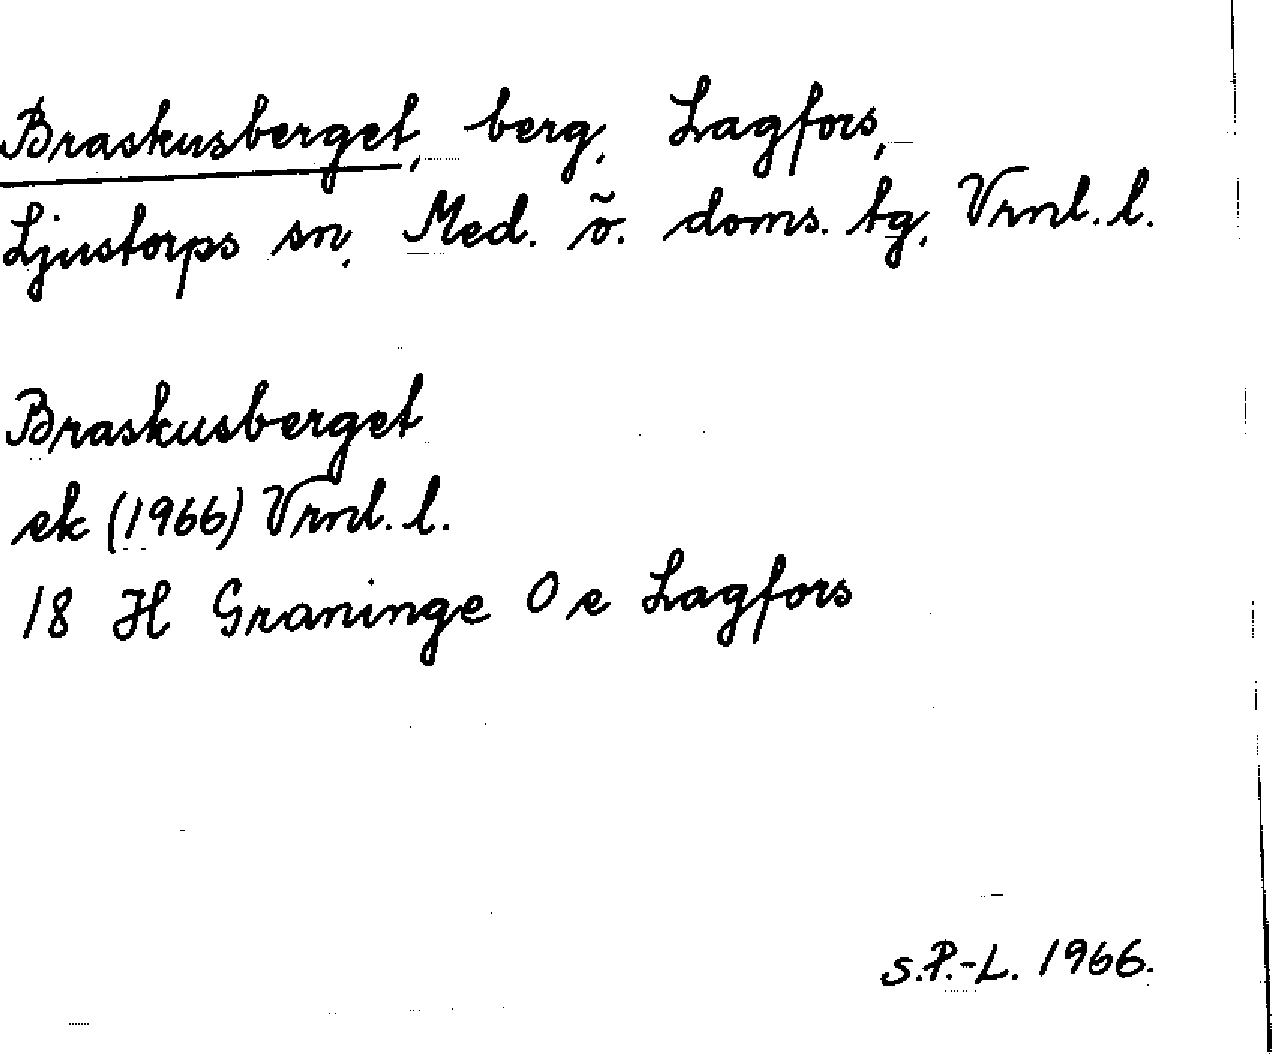 Braskusberget, berg, Lagfors,
Ljustorps sn, Med. ö. doms. tg, Vrnl. l.
Braskusberget
ek (1966) Vrnl. l.
18 H Graninge O e Lagfors
S.P.-L. 1966.